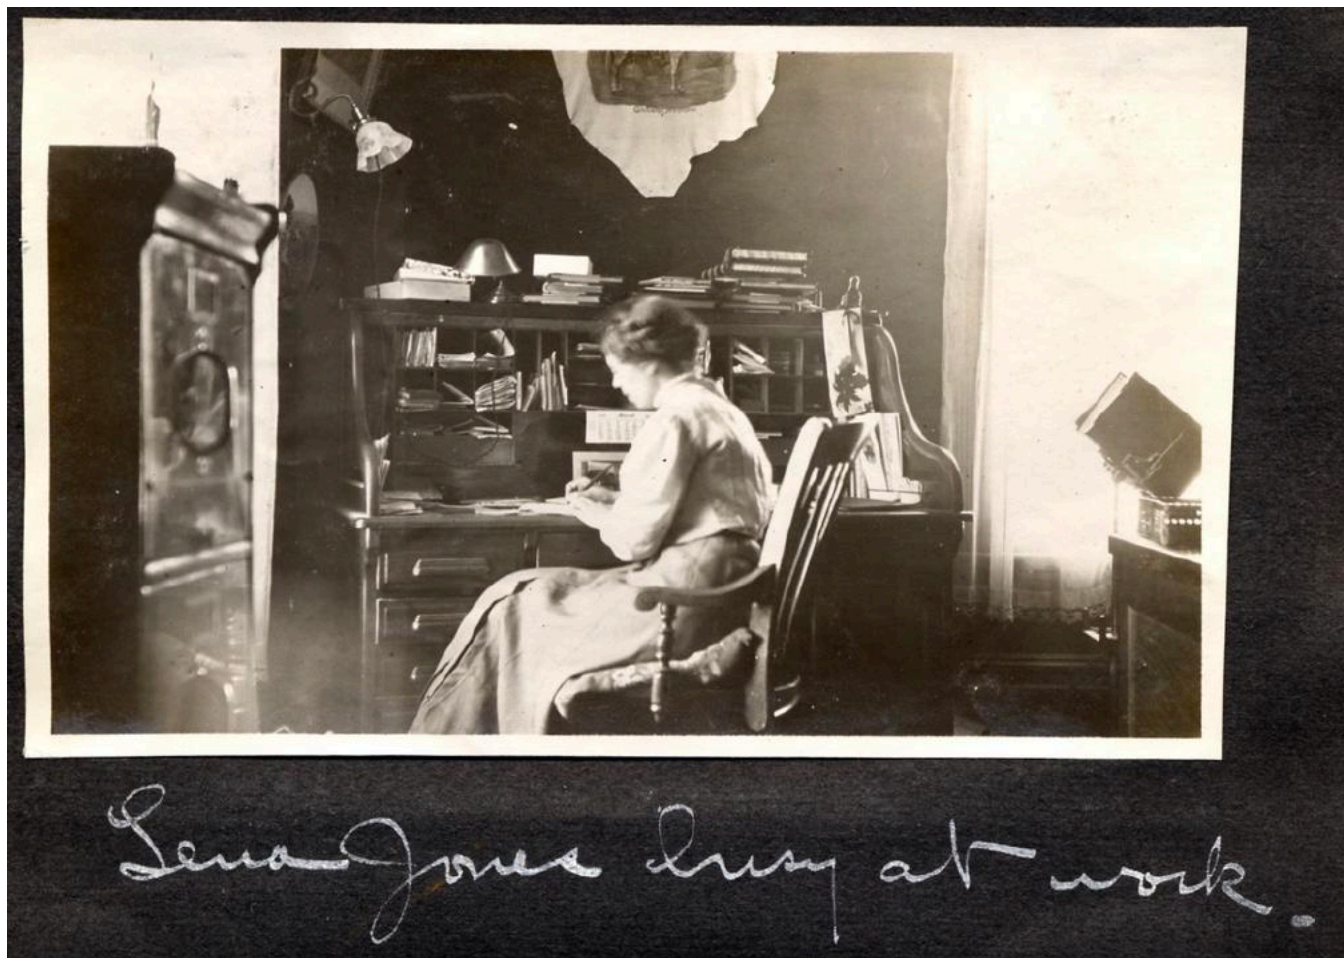 Lena Jones busy at work.